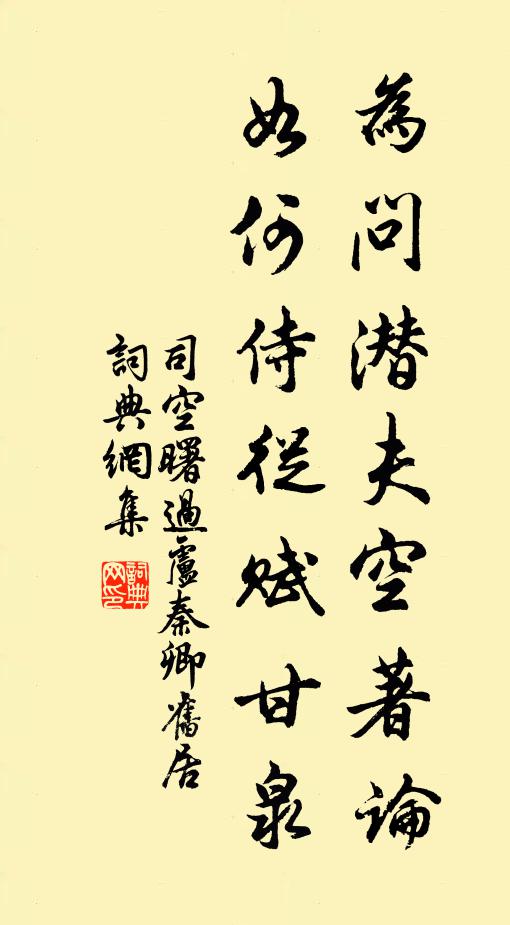 為問潜夫空著論
如何侍從賦甘泉
司空曙過盧秦卿舊居
詞典網集
詞典网印